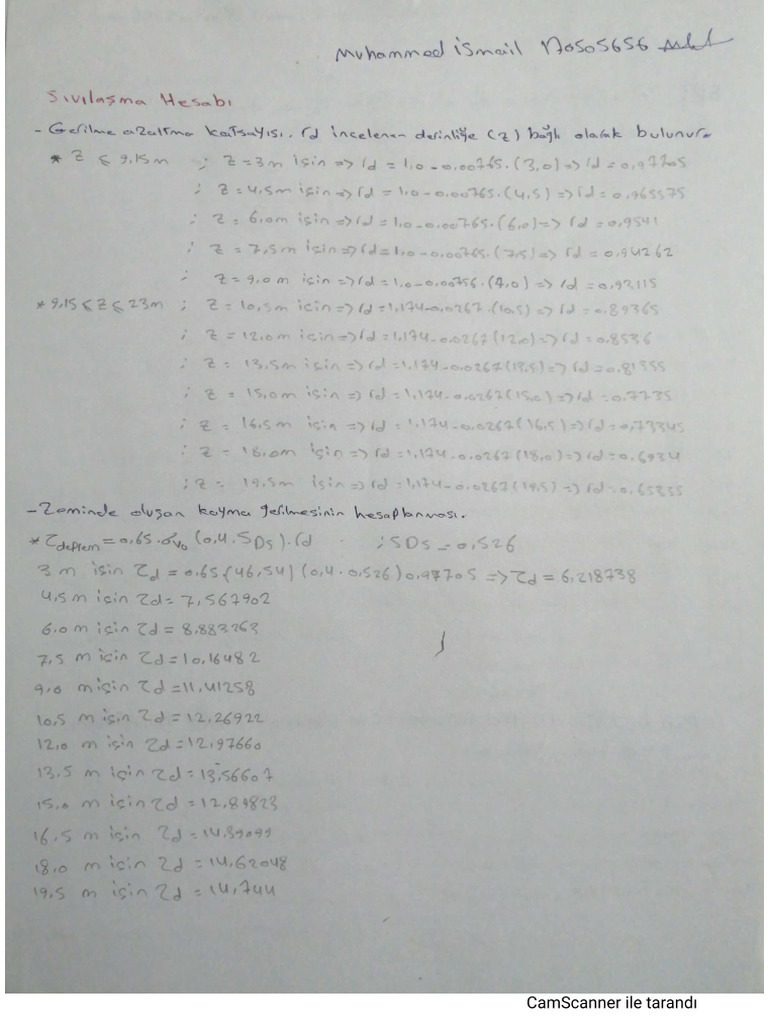 Muhammed ismail 170505656
Sıvılaşma Hesabı
- Gerilme azaltma katsayısı. rd incelenen derinliğe (z) bağlı olarak bulunur.
* Z ≤ 9,15m ; Z=3m için => rd = 1,0-0,00765.(3,0) => rd = 0,97705
; Z=4,5m için => rd = 1,0-0,00765.(4,5) => rd = 0,965575
; Z= 6,0m için => rd = 1,0-0,00765.(6,0) => rd = 0,9541
; Z= 7,5m için => rd = 1,0-0,00765.(7,5) => rd = 0,94262
; Z= 9,0m için => rd = 1,0-0,00756.(9,0) => rd = 0,93115
* 9,15 ≤ Z ≤ 23m ; Z= 10,5m için => rd = 1,174-0,0267.(10,5) => rd = 0,89365
; Z= 12,0m için => rd = 1,174-0,0267(12,0) => rd = 0,8536
; Z= 13,5m için => rd = 1,174-0,0267(13,5) => rd = 0,81355
; Z= 15,0m için => rd = 1,174-0,0267(15,0) => rd = 0,7735
; Z= 16,5m için => rd = 1,174-0,0267(16,5) => rd = 0,73345
; Z= 18,0m için => rd = 1,174-0,0267(18,0) => rd = 0,6934
; Z= 19,5m için => rd = 1,174-0,0267(19,5) => rd = 0,65335
- Zeminde oluşan kayma gerilmesinin hesaplanması.
* τdeprem = 0,65.σv0 (0,4.SDS).rd ; SDS = 0,526
3 m için τd = 0,65(46,54)(0,4.0,526)0,97705 => τd = 6,218738
4,5 m için τd= 7,567902
6,0 m için τd = 8,883263
7,5 m için τd = 10,16482
9,0 m için τd = 11,41258
10,5 m için τd = 12,26922
12,0 m için τd = 12,97660
13,5 m için τd = 13,56607
15,0 m için τd = 12,89823
16,5 m için τd = 14,39099
18,0 m için τd = 14,62048
19,5 m için τd = 14,744
CamScanner ile tarandı